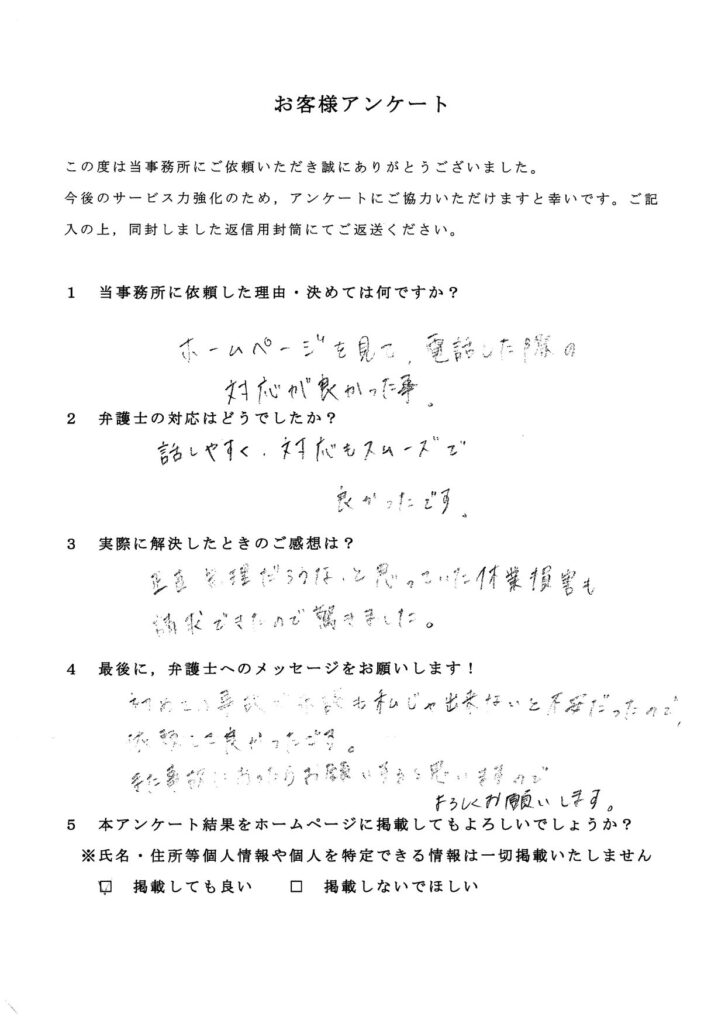 お客様アンケート
この度は当事務所にご依頼いただき誠にありがとうございました。
今後のサービス力強化のため，アンケートにご協力いただけますと幸いです。ご記
入の上，同封しました返信用封筒にてご返送ください。
1 当事務所に依頼した理由・決めては何ですか？
ホームページを見て，電話した際の
対応が良かった事。
2 弁護士の対応はどうでしたか？
話しやすく、対応もスムーズで
良かったです。
3 実際に解決したときのご感想は？
正直無理だろうな、と思っていた休業損害も
請求できたので驚きました。
4 最後に，弁護士へのメッセージをお願いします！
初めての事故で も私じゃ出来ないと不安だったので，
依頼して良かったです。
また事故にあったらお願いすると思いますので
よろしくお願いします。
5 本アンケート結果をホームページに掲載してもよろしいでしょうか？
※氏名・住所等個人情報や個人を特定できる情報は一切掲載いたしません
☑ 掲載しても良い □ 掲載しないでほしい